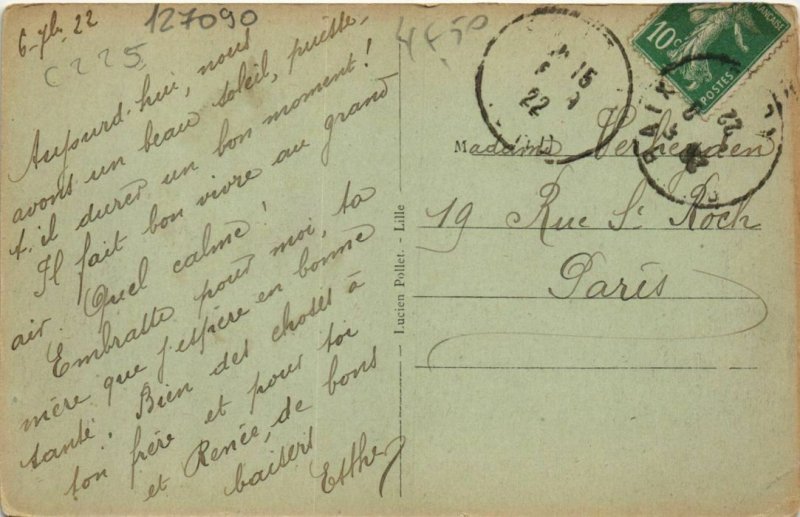 6-7bre 22
127090
C225
4f,50
Aujourd'hui, nous
avons un beau soleil, puisse,
t,il durer un bon moment!
Il fait bon vivre au grand
air. Quel calme!
Embrasse pour moi, ta
mère que j'espère en bonne
santé. Bien des choses à
ton frère et pour toi
et Renée, de bons
baisers
Esther
Lucien Pollet. - Lille
10c
POSTES
15
22
Madame Verheyden
19 Rue St Roch
Paris